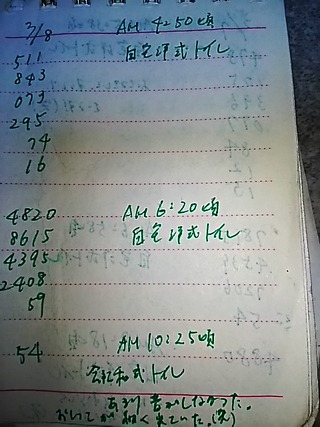 7/8 AM 4:50頃
自宅洋式トイレ
511
843
073
295
74
16
4820 AM 6:20頃
8615 自宅洋式トイレ
4395
2408
59
54 AM 10:25頃
会社和式トイレ
あまり書かしなかった。
においてが 軽く出ていた。(笑)